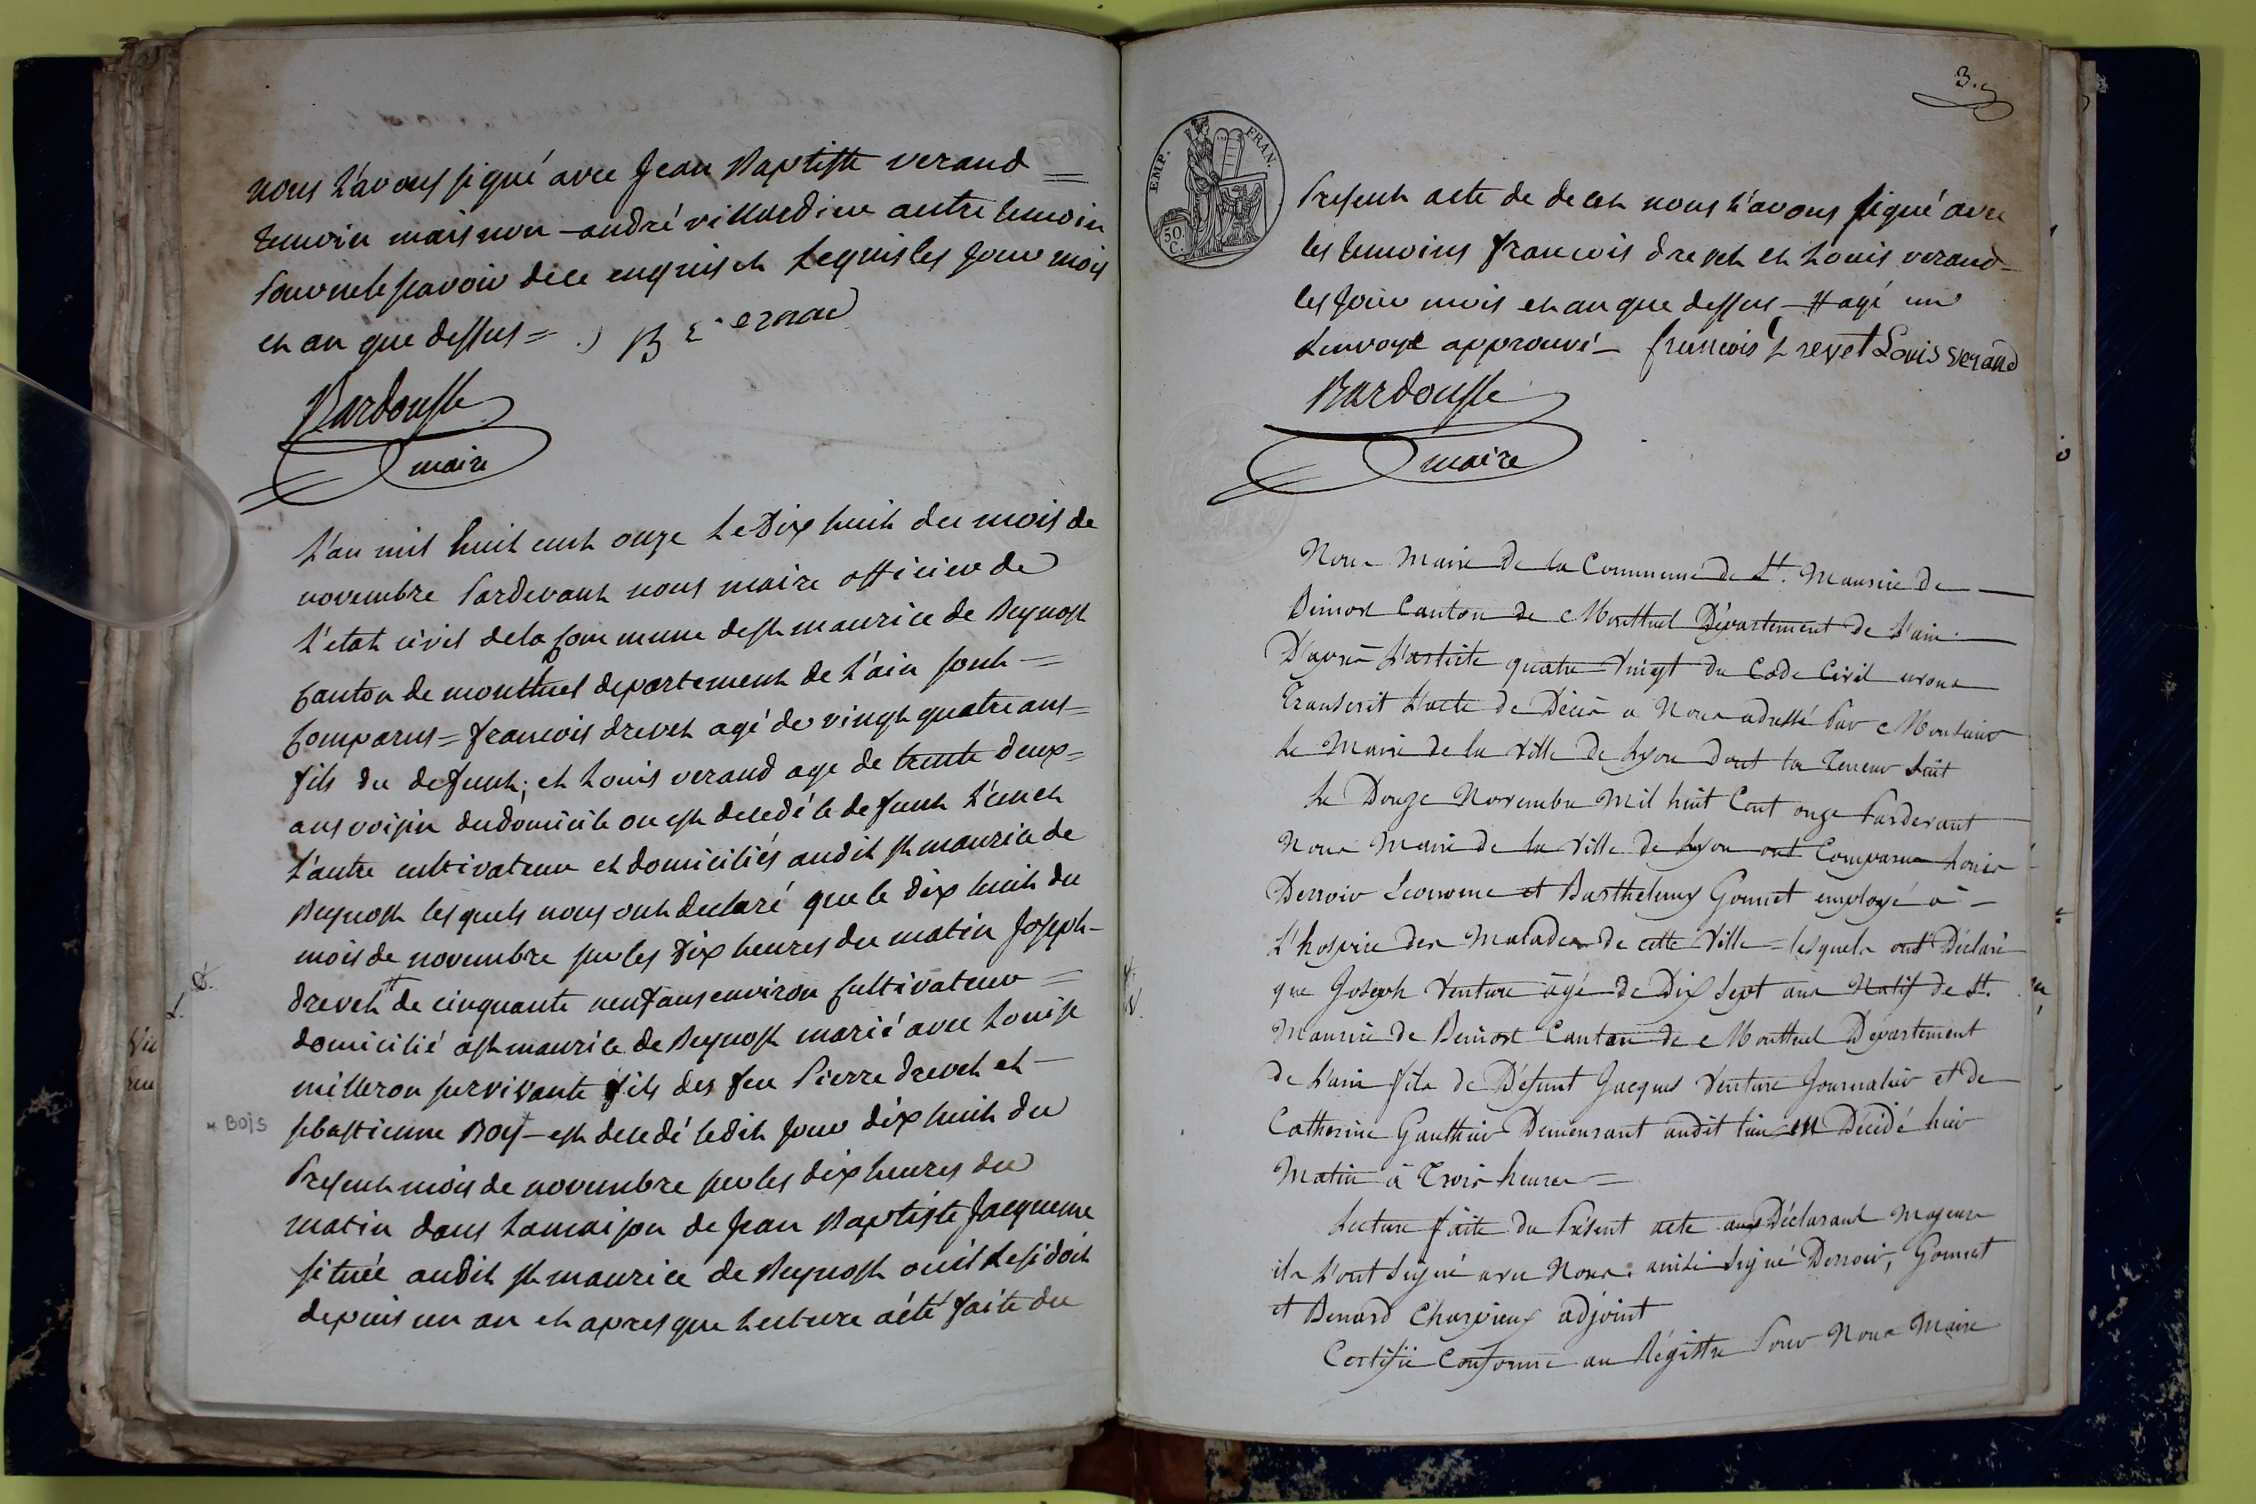 nous l'avons signé avec Jean Baptiste verand =
temoin mais non andré villardieu autre temoin
pour ne le savoir de ce enquis et requis les jour mois
et an que dessus =
Bardousse
maire
L'an mil huit cent onze Le Dix huit du mois de
novembre pardevant nous maire officier de
l'etat civil de la Commune de st maurice de Beynost
Canton de montluel departement de l'ain sont =
Comparus = francois drevet agé de vingt quatre ans =
fils du defunt; et Louis verand age de trente deux =
ans voisin du domicile ou est decedé le defunt l'un et
l'autre cultivateur et domiciliés audit st maurice de
Beynost les quels nous ont declaré que le dix huit du
mois de novembre sur les dix heures du matin Joseph -
drevet # de cinquante neuf ans environ Cultivateur =
domicilié a st maurice de Beynost marié avec Louise
milleron survivante fils des feu Pierre drevet et -
sebastienne Boy - est decedé ledit jour dix huit du
* BOIS
present mois de novembre sur les dix heures du
matin dans la maison de Jean Baptiste Jacqueme
située audit st maurice de Beynost ou il residoit
depuis un an et apres que lecture a été faite du
3.
EMP. FRAN.
50 C.
Present acte de deces nous l'avons signé avec
les temoins francois drevet et Louis verand -
les jour mois et an que dessus - # agé un
renvoye approuvé - francois drevet Louis verand
Bardousse
maire
Nous Maire de la Commune de St. Maurice de
Beinost Canton de Montluel Département de l'ain
D'après L'article quatre Vingt du Code Civil avons
Transcrit l'acte de Décès a Nous adressé Par Monsieur
Le Maire de la Ville de Lyon dont la Teneur Suit
Le Douze Novembre Mil huit Cent onze Pardevant
Nous Maire de la Ville de Lyon ont Comparus Louis
Derroir Econome et Barthelemy Gonnet employé à -
L'hospice des Malades de cette Ville = lesquels ont Déclaré
que Joseph Venture âgé de Dix Sept ans Natif de St.
Maurice de Beinost Canton de Montluel Département
de l'ain fils de Défunt Jacques Venture Journalier et de
Catherine Gauthier Demeurant audit lieu est Décédé hier
Matin à Trois heures =
Lecture faite du Présent acte aux Déclarant Majeurs
ils l'ont Signé avec Nous. ainsi Signé Derroir, Gonnet
et Benard Charpieux adjoint
Certifié Conforme au Régistre Pour Nous Maire